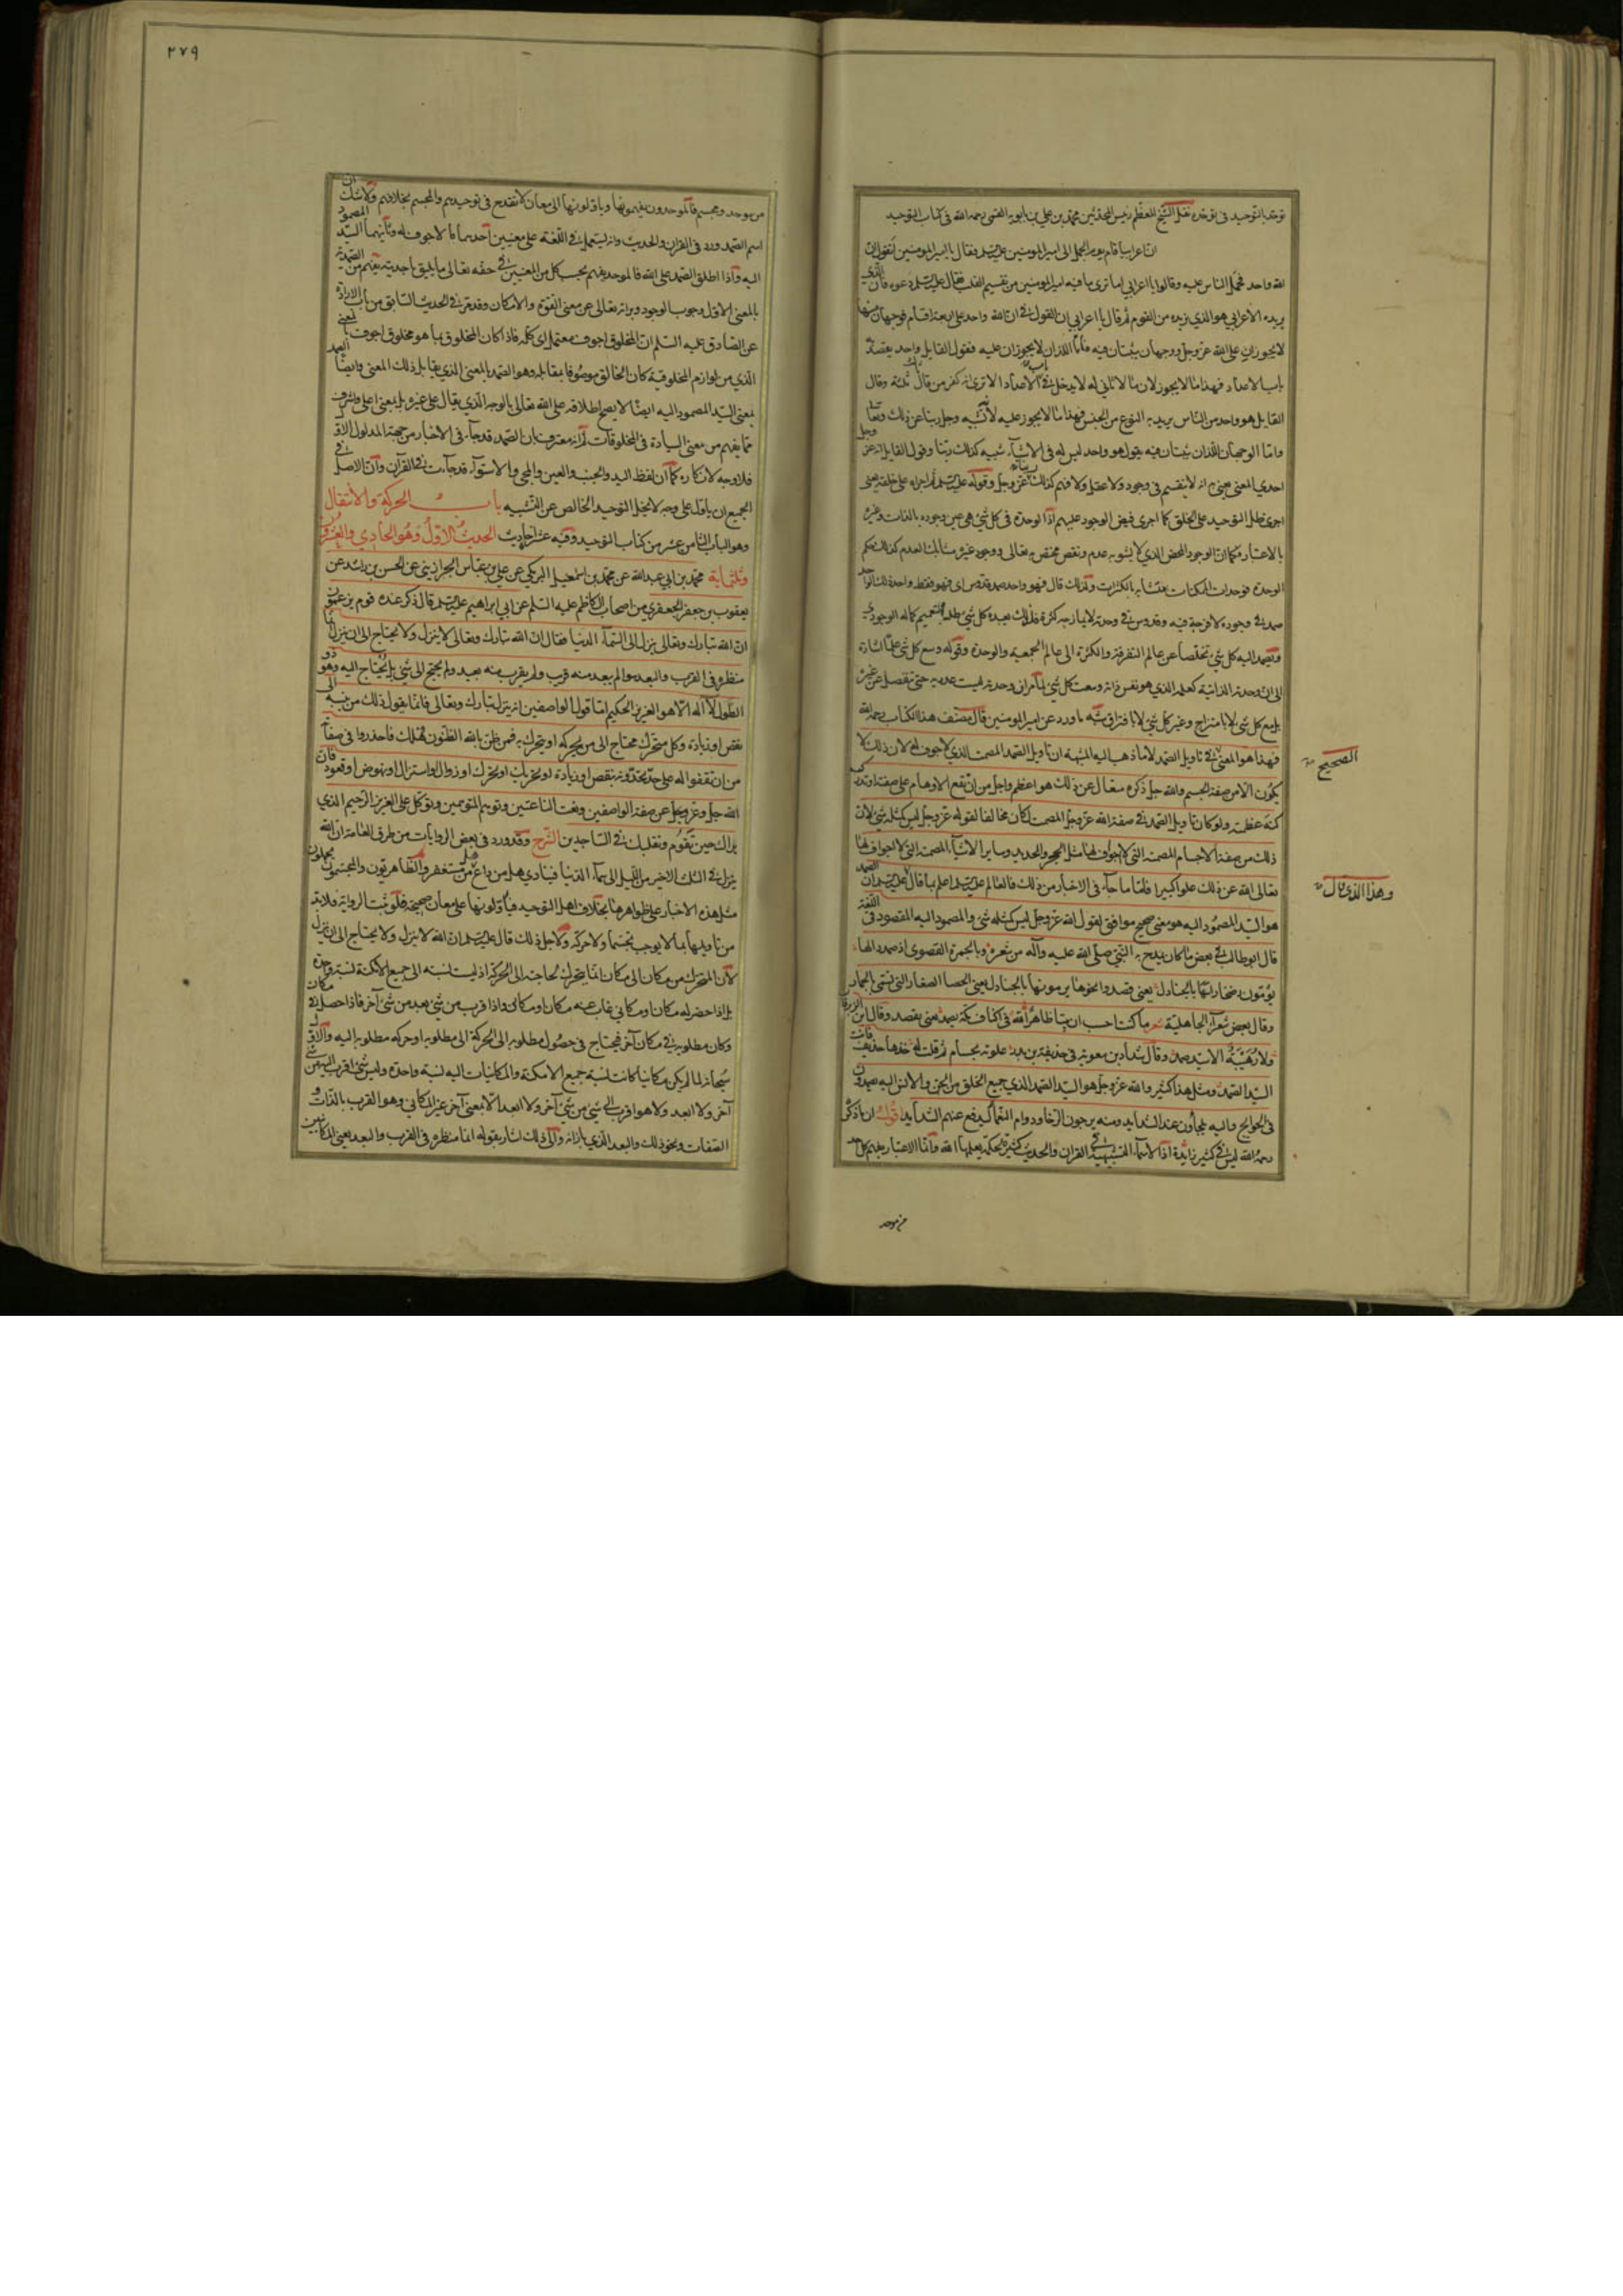 توحد بالتوحيد فى توحده نقل الشيخ المعظم رئيس المحدثين محمد بن علي بن بابويه القمى رحمه الله فى كتاب التوحيد
ان اعرابيا قام يوم الجمل الى امير المومنين عليه السلم فقال يا امير المومنين اتقول ان
الله واحد فحمل الناس عليه وقالوا يا اعرابي اما ترى ما فيه امير المومنين من تقسيم القلب فقال عليه السلم دعوه فان الذي
يريده الاعرابي هو الذي نريده من القوم ثم قال يا اعرابي ان القول فى ان الله واحد على اربعة اقسام فوجهان منها
لا يجوزان على الله عز وجل ووجهان يثبتان فيه فاما اللذان لا يجوزان عليه فقول القايل واحد يقصد به
باب الاعداد فهذا ما لا يجوز لان ما لا ثاني له لا يدخل فى باب الاعداد الا ترى انه كفر من قال ثالث ثلثة وقال
القايل هو واحد من الناس يريد به النوع من الجنس فهذا ما لا يجوز عليه لانه تشبيه وجل ربنا عن ذلك وتعالى
واما الوجهان اللذان يثبتان فيه يقول هو واحد ليس له فى الاشياء شبيه كذلك ربنا وقول القايل انه عز وجل
احدي المعنى يعني به انه لا ينقسم فى وجود ولا عقل ولا وهم كذلك ربنا عز وجل وقوله عليه السلم ثم اجراه على خلقه يعنى
اجرى ظل التوحيد على الخلق كما اجرى فيض الوجود عليهم اذ الوحدة فى كل شي هى عين وجوده بالذات وغيره
بالاعتبار فكما ان الوجود المحض الذي لا يشوبه عدم ونقص مختص به تعالى ووجود غيره مشابك بالعدم كذلك حكم
الوحدة فوحدات الممكنات متشابه بالكثرات ولذلك قال فهو واحد صمد قدوس اى فهو فقط واحد بذلك الواحد
صمد فى وجوده لا فرجة فيه وقدوس فى وحدته لا يمازجه كثرة فلذلك يعبده كل شي طلبا لتتميم كماله الوجودي
ويصمد اليه كل شي تخلصا عن عالم التفرقة والكثرة الى عالم الجمعية والوحدة وقوله وسع كل شي علما اشارة
الى ان وحدته الذاتية كعلمه الذي هو نفس ذاته وسعت كل شي لما مر ان وحدته ليست عددية حتى تنفصل عن غيره
بل مع كل شي لا بامتزاج وغير كل شي لا بافتراق شبه ما ورد عن امير المومنين قال مصنف هذا الكتاب رحمه الله
فهذا هو المعنى فى تاويل الصمد لا ما ذهب اليه المشبهة ان تاويل الصمد المصمت الذي لا جوف له لان ذلك لا
الصحيح
يكون الا من صفة الجسم والله جل ذكره متعال عن ذلك هو اعظم واجل من ان تقع الاوهام على صفته او تدرك
كنه عظمته ولو كان تاويل الصمد فى صفة الله عز وجل المصمت لكان مخالفا لقوله عز وجل ليس كمثله شي لان
ذلك من صفة الاجسام المصمتة التى لا اجواف لها مثل الحجر والحديد وساير الاشياء المصمتة التى لا اجواف لها
تعالى الله عن ذلك علوا كبيرا فاما ما جاء فى الاخبار من ذلك فالعالم عليه السلم اعلم بما قال عليه السلم ان الصمد
وهذا الذي قال
هو السيد المصمود اليه هو معنى صحيح موافق لقول الله عز وجل ليس كمثله شي والمصمود اليه المقصود فى اللغة
قال ابو طالب فى بعض ما كان يمدح به النبي صلى الله عليه وآله من شعره وبالجمرة القصوى اذ صمدوا لها
يؤمون رضخا راسها بالجنادل يعني قصدوا نحوها يرمونها بالجنادل يعني الحصا الصغار التى تسمى بالجمار
وقال بعض شعراء الجاهلية شعر ما كنت احسب ان بيتا ظاهرا لله فى اكناف مكة يصمد يعني يقصد وقال ابن الزبرقان
ولا رهيبة الا سيد صمد وقال شداد بن معوية فى حذيفة بن بدر علوته بحسام ثم قلت له خذها حذيف فانت
السيد الصمد ومثل هذا كثير والله عز وجل هو السيد الصمد الذي جميع الخلق من الجن والانس اليه يصمدون
فى الحوايج واليه يلجأون عند الشدايد ومنه يرجون الرخا ودوام النعماء ليدفع عنهم الشدايد اقول ان ما ذكره
رحمه الله ليس فيه كثير زايدة اذ الاسماء التشبيهية فى القران والحديث كثيرة محكمة يعلمها الله وانما الاعتبار بفهم كل احد
من موحد
٢٧٩
من موحد ومجسم فالموحدون يفهمونها وياولونها الى معان لا تقدح فى توحيدهم والمجسم بخلافهم ولا شك ان
اسم الصمد ورد فى القران والحديث وانه يستعمل فى اللغة على معنيين احدهما ما لا جوف له وثانيهما السيد المصمود
اليه واذا اطلق الصمد على الله فالموحد يفهم بحسب كل من المعنيين فى حقه تعالى ما يليق باحديته يفهم من الصمد
بالمعنى الاول وجوب الوجود وبراءته تعالى عن معنى القوة والامكان وقد مر فى الحديث السابق من باب الارادة
عن الصادق عليه السلم ان المخلوق اجوف معتمل اى كله فاذا كان المخلوق بما هو مخلوق اجوف بالمعنى
الذي من لوازم المخلوقية كان الخالق موصوفا بمقابله وهو الصمد بالمعنى الذي يقابل ذلك المعنى وايضا الصمد
بمعنى السيد المصمود اليه ايضا لا يصح اطلاقه على الله تعالى بالوجه الذي يقال على غيره بل بمعنى اعلى واشرف
مما يفهم من معنى السيادة فى المخلوقات ثم انه معترف بان الصمد قد جاء فى الاخبار من جهة المدلول الاول
فلا وجه لانكاره كما ان لفظ اليد والجنب والعين والمجي والاستواء قد جاءت فى القرآن وان الاصل فى
الجميع ان ياول على وجه لا يخل التوحيد الخالص عن التشبيه باب الحركة والانتقال
وهو الباب الثامن عشر من كتاب التوحيد وفيه عشر احاديث الحديث الاول وهو الحادي والعشرون
وثلثماية محمد بن ابي عبد الله عن محمد بن اسمعيل البرمكي عن علي بن عباس الجراذيني عن الحسن بن راشد عن
يعقوب بن جعفر الجعفري من اصحاب الكاظم عليه السلم عن ابي ابراهيم عليه السلم قال ذكر عنده قوم يزعمون
ان الله تبارك وتعالى ينزل الى السماء الدنيا فقال ان الله تبارك وتعالى لا ينزل ولا يحتاج الى ان ينزل انما
منظره فى القرب والبعد سوا لم يبعد منه قريب ولم يقرب منه بعيد ولم يحتج الى شي بل يحتاج اليه وهو ذو
الطول لا اله الا هو العزيز الحكيم اما قول الواصفين انه ينزل تبارك وتعالى فانما يقول ذلك من ينسبه الى
نقص او زيادة وكل متحرك محتاج الى من يحركه او يتحرك به فمن ظن بالله الظنون هلك فاحذروا فى صفاته
من ان تقفوا له على حد تحدونه بنقص او زيادة او تحريك او تحرك او زوال او استنزال او نهوض او قعود فان
الله جل وعز وجل عن صفة الواصفين ونعت الناعتين وتوهم المتوهمين وتوكل على العزيز الرحيم الذي
يراك حين تقوم وتقلبك فى الساجدين الشرح وقد ورد فى بعض الروايات من طرق العامة ان الله
ينزل فى الثلث الاخير من الليل الى سماء الدنيا فينادي هل من داع هل من مستغفر والظاهريون والمجسمون يحملون
مثل هذه الاخبار على ظواهرها بخلاف اهل التوحيد فياولونها على معان صحيحة فلو ثبت الرواية فلا بد
من تاويلها بما لا يوجب تجسما ولا حركة ولاجل ذلك قال عليه السلم ان الله لا ينزل ولا يحتاج الى ان ينزل
لان المتحرك من مكان الى مكان انما يتحرك لحاجته الى الحركة اذ ليست نسبته الى جميع الامكنة نسبة واحدة
بل اذا حضر له مكان او مكاني غاب عنه مكان او مكاني واذا قرب من شي بعد من شي آخر فاذا حصل فى مكان
وكان مطلوبه فى مكان آخر فيحتاج فى حصول مطلوبه الى الحركة الى مطلوبه او حركة مطلوبه اليه والاول
سبحانه لما لم يكن مكانيا كانت نسبة جميع الامكنة والمكانيات اليه نسبة واحدة وليس شي اقرب اليه من شي
آخر ولا ابعد ولا هو اقرب الى شي من شي آخر ولا ابعد الا بمعنى آخر غير المكاني وهو القرب بالذات و
الصفات ونحو ذلك والبعد الذي بازائه والى ذلك اشار بقوله انما منظره فى القرب والبعد يعني المكانيين